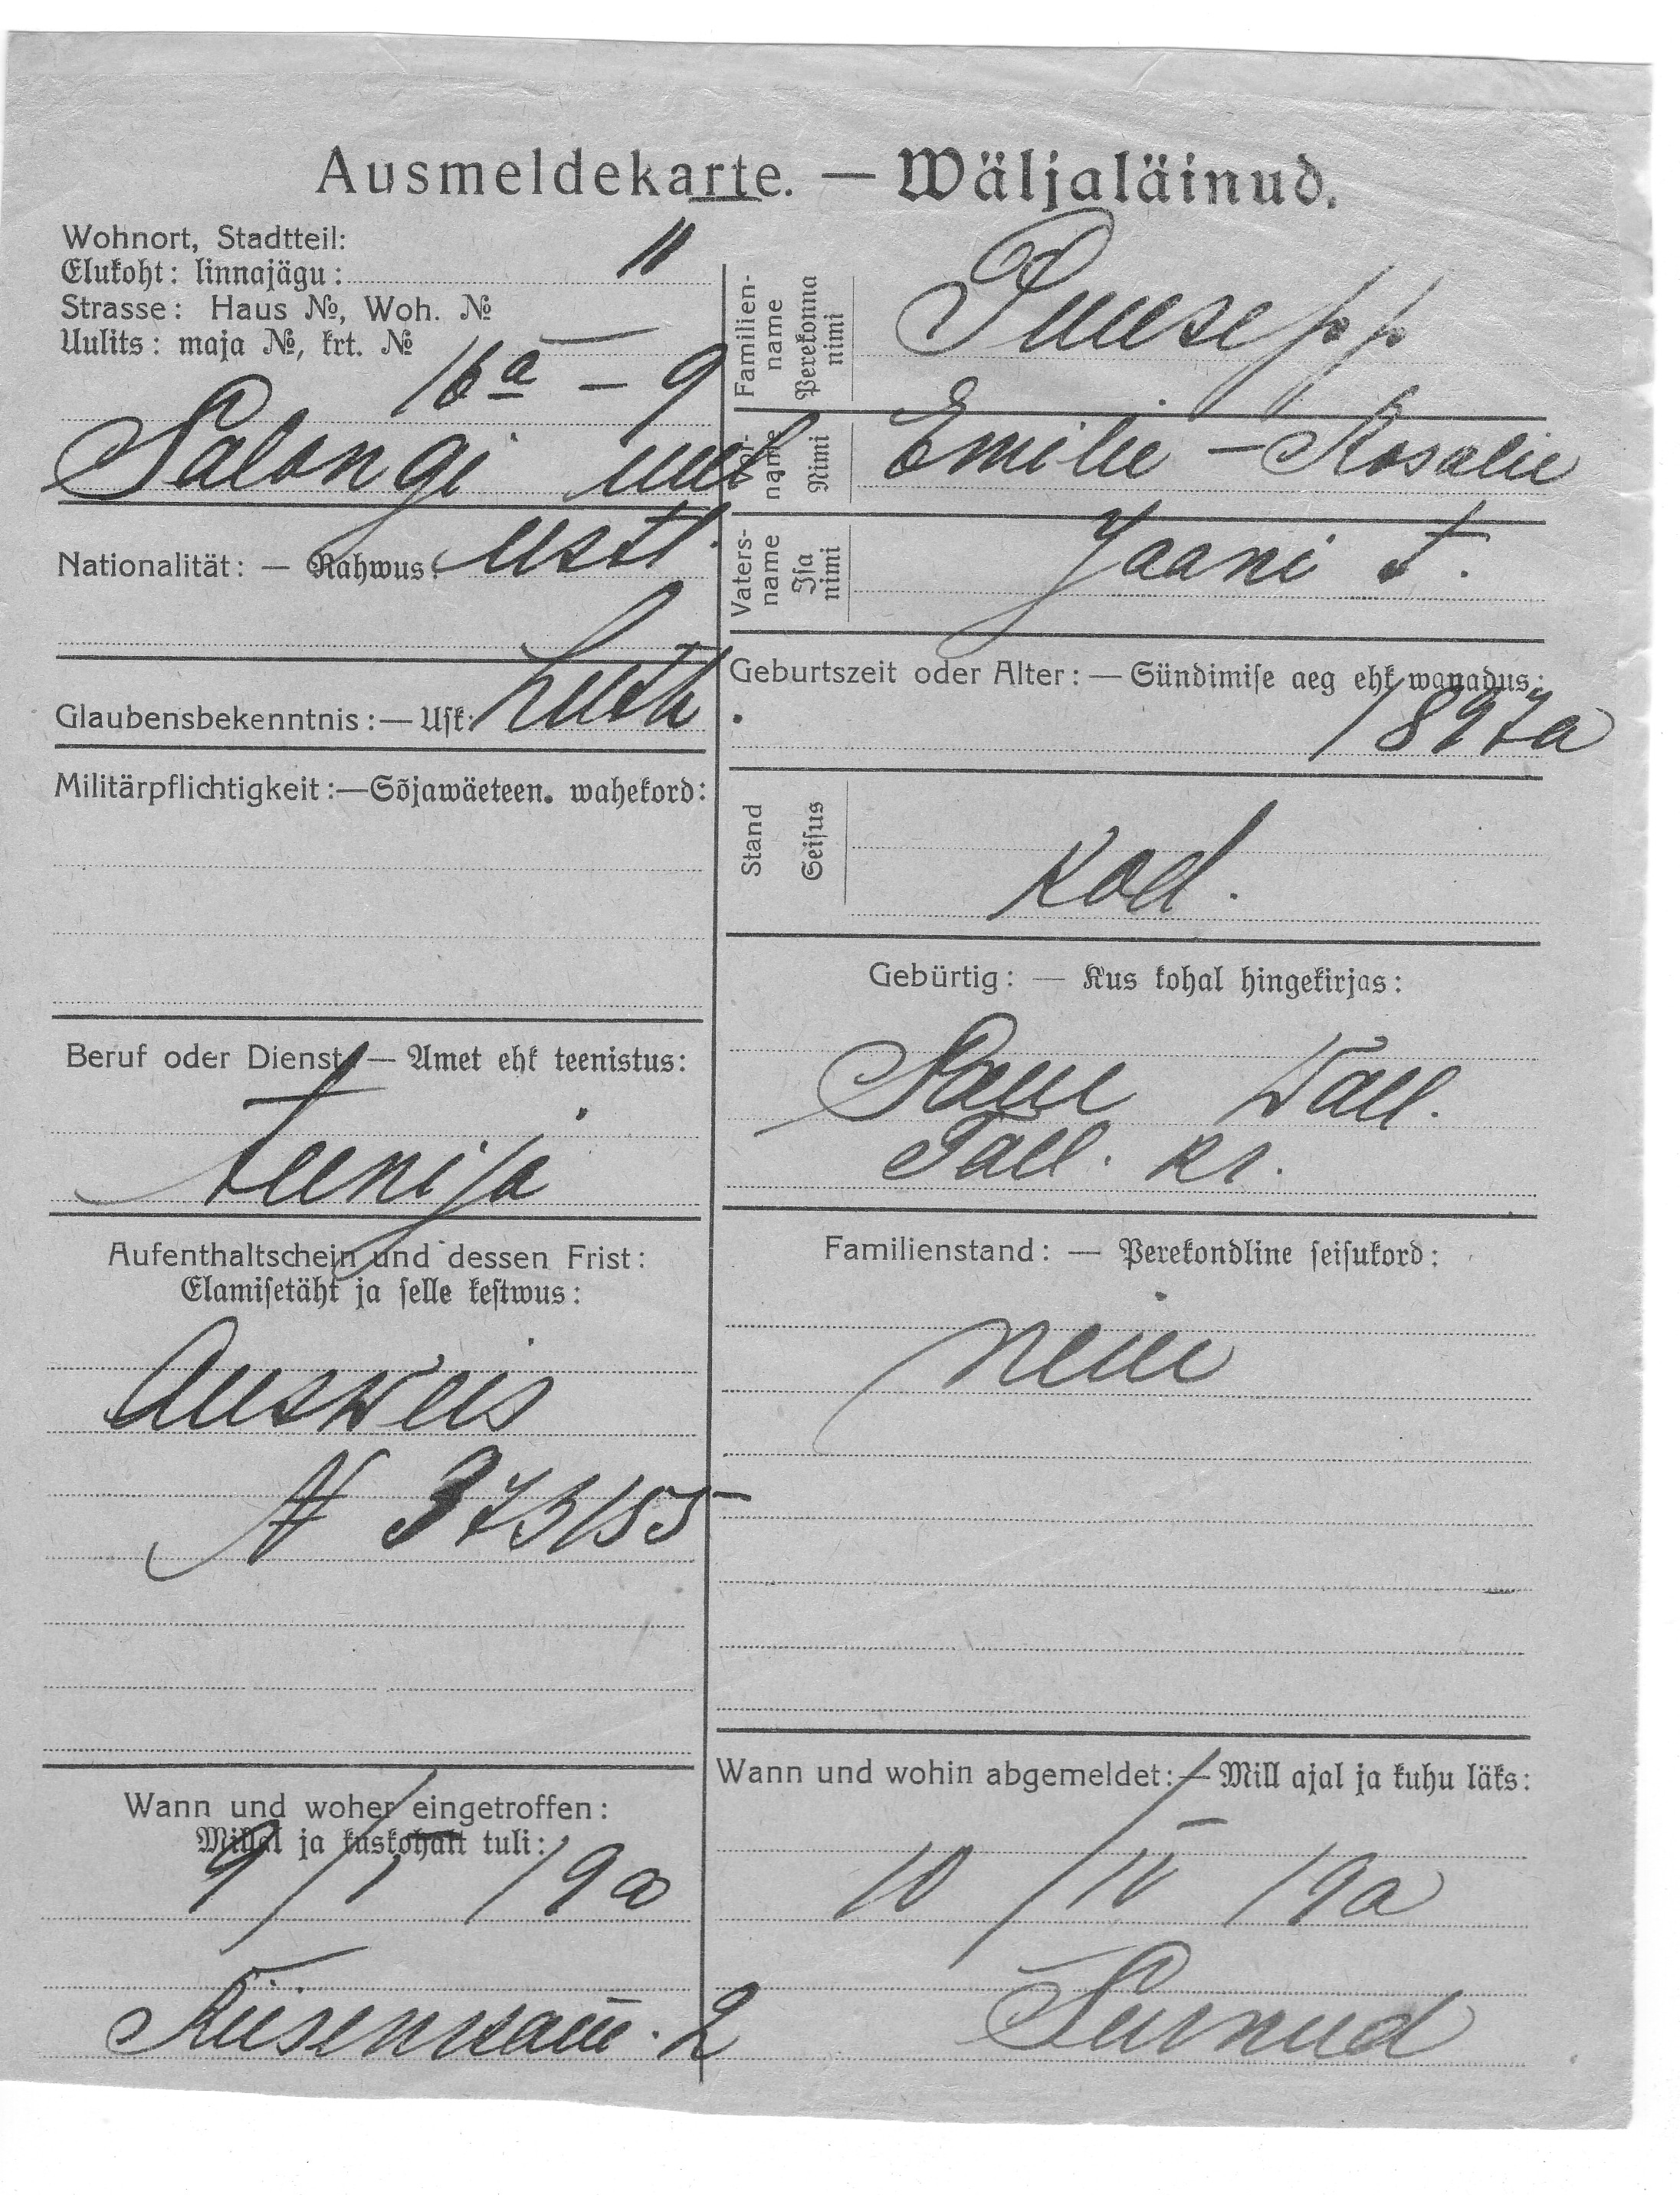 Ausmeldekarte. — Wäljaläinud.
Wohnort, Stadtteil:
Elukoht: linnajägu: II
Strasse: Haus №, Woh. №
Uulits: maja №, krt. №
16a – 9
Salongi uul
Nationalität: — Rahwus: eestl.
Glaubensbekenntnis: — Usk: Luth.
Militärpflichtigkeit: — Sõjawäeteen. wahekord:
Beruf oder Dienst — Amet ehk teenistus:
teenija
Aufenthaltschein und dessen Frist:
Elamisetäht ja selle kestwus:
Ausweis
N 373155
Wann und woher eingetroffen:
Millal ja kuskohalt tuli:
9/I 19a
2
Familien-
name
Perekonna
nimi
Puusepp
Vor-
name
Nimi
Emilie – Rosalie
Vaters-
name
Isa
nimi
Jaani t.
Geburtszeit oder Alter: — Sündimise aeg ehk wanadus:
1897a
Stand
Seisus
kod.
Gebürtig: — Kus kohal hingekirjas:
Saue Wall.
Tall. kr.
Familienstand: — Perekondline seisukord:
neiu
Wann und wohin abgemeldet: — Mill ajal ja kuhu läks:
10/IV 19a
Surnud